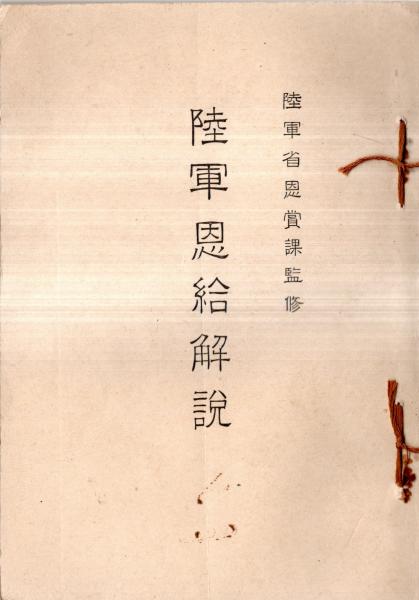 陸軍省恩賞課監修
陸軍恩給解説